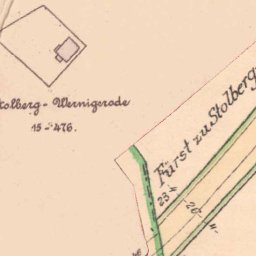 Stolberg - Wernigerode
15 - 476.
Fürst zu Stolberg
23.4
20